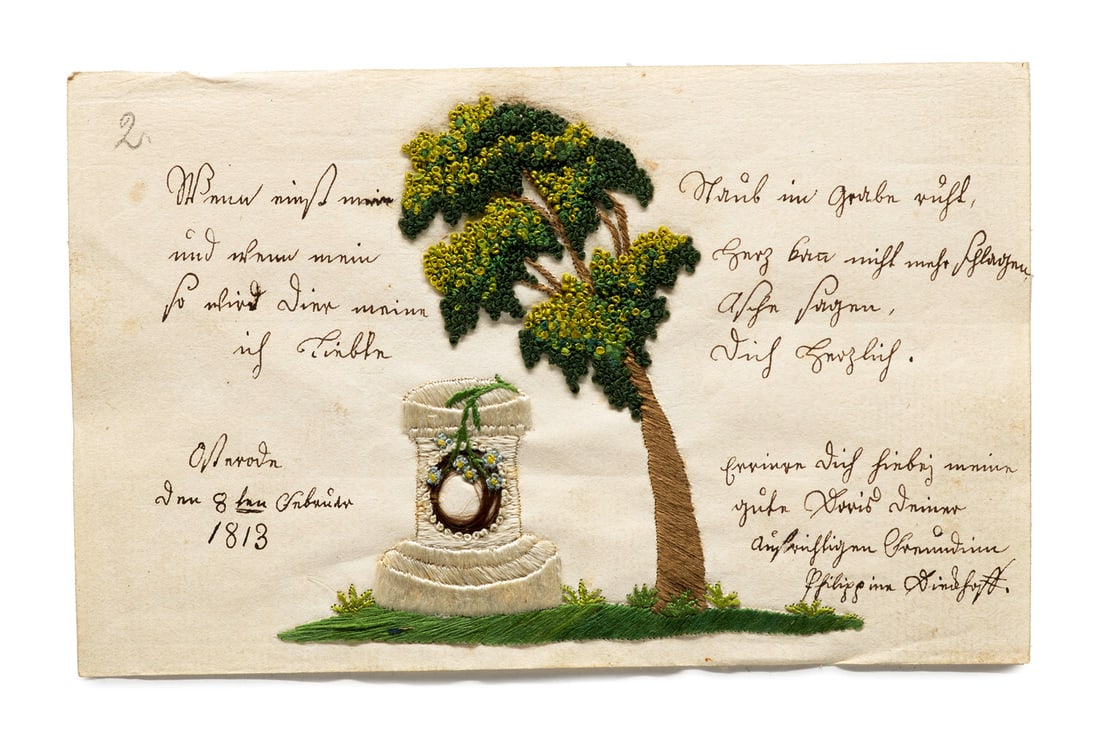 2.
Wenn einst mein Staub im Grabe ruht,
und wenn mein Herz kan nicht mehr schlagen,
so wird Dier meine Asche sagen,
ich Liebte Dich Herzlich.
Osterode
den 8ten Februar
1813
Errinre Dich hiebej meine
gute Doris deiner
aufrichtigen Freundinn
Philippine Dieckhoff.